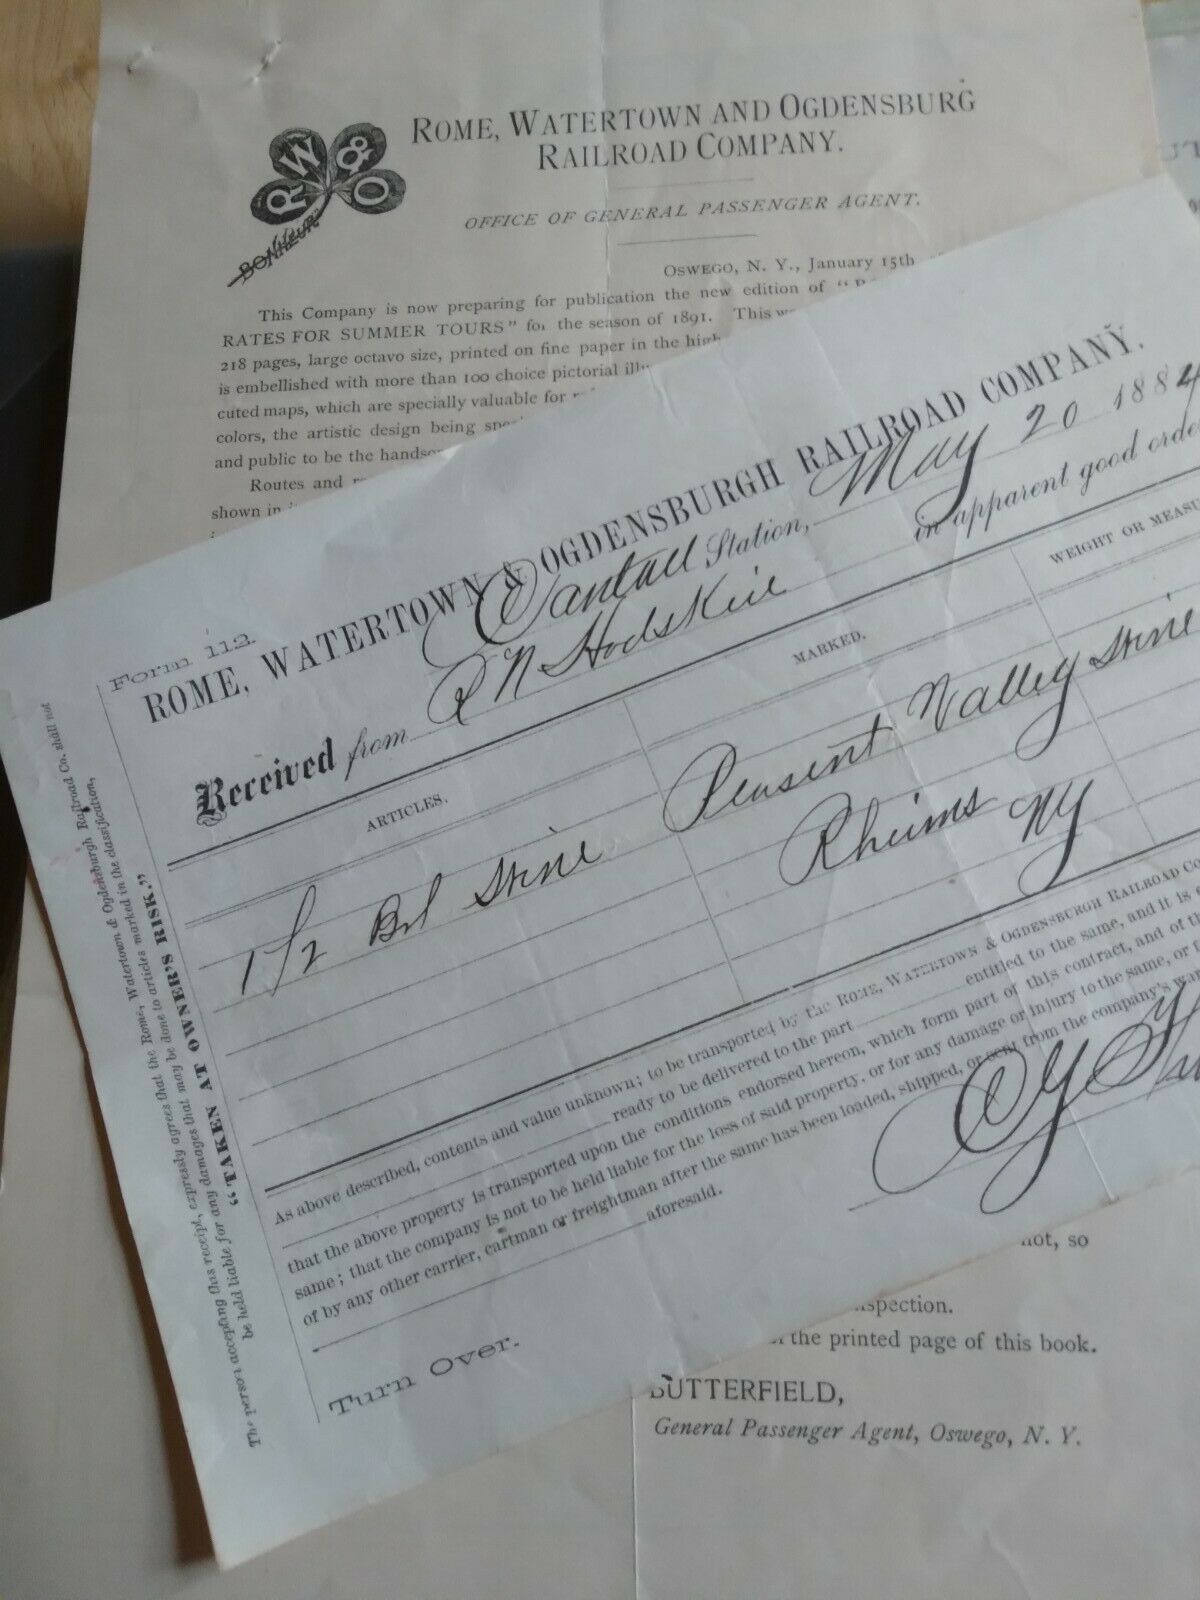 ROME, WATERTOWN AND OGDENSBURG
RAILROAD COMPANY.
R W & O
BONHEUR
OFFICE OF GENERAL PASSENGER AGENT.
OSWEGO, N. Y., January 15th
This Company is now preparing for publication the new edition of
RATES FOR SUMMER TOURS" for the season of 1891. This
218 pages, large octavo size, printed on fine paper in the high
is embellished with more than 100 choice pictorial
cuted maps, which are specially valuable for
colors, the artistic design being
and public to be the
Routes and
shown in
Form 113.
ROME, WATERTOWN & OGDENSBURGH RAILROAD COMPANY.
Station, May 20 1884
Received from N Hodskin in apparent good order
ARTICLES. MARKED. WEIGHT OR
1/2 Bbl Pleasent Valley
Rheims NY
As above described, contents and value unknown; to be transported by the ROME, WATERTOWN & OGDENSBURGH RAILROAD
ready to be delivered to the part entitled to the same, and it is
that the above property is transported upon the conditions endorsed hereon, which form part of this contract, and of
same; that the company is not to be held liable for the loss of said property, or for any damage or injury to the same, or
of by any other carrier, cartman or freightman after the same has been loaded, shipped, or sent from the company's
aforesaid.
Turn Over.
The person accepting this receipt, expressly agrees that the Rome, Watertown & Ogdensburgh Railroad Co. shall not
be held liable for any damages that may be done to articles marked in the classification,
"TAKEN AT OWNER'S RISK."
not, so
the printed page of this book.
BUTTERFIELD,
General Passenger Agent, Oswego, N. Y.